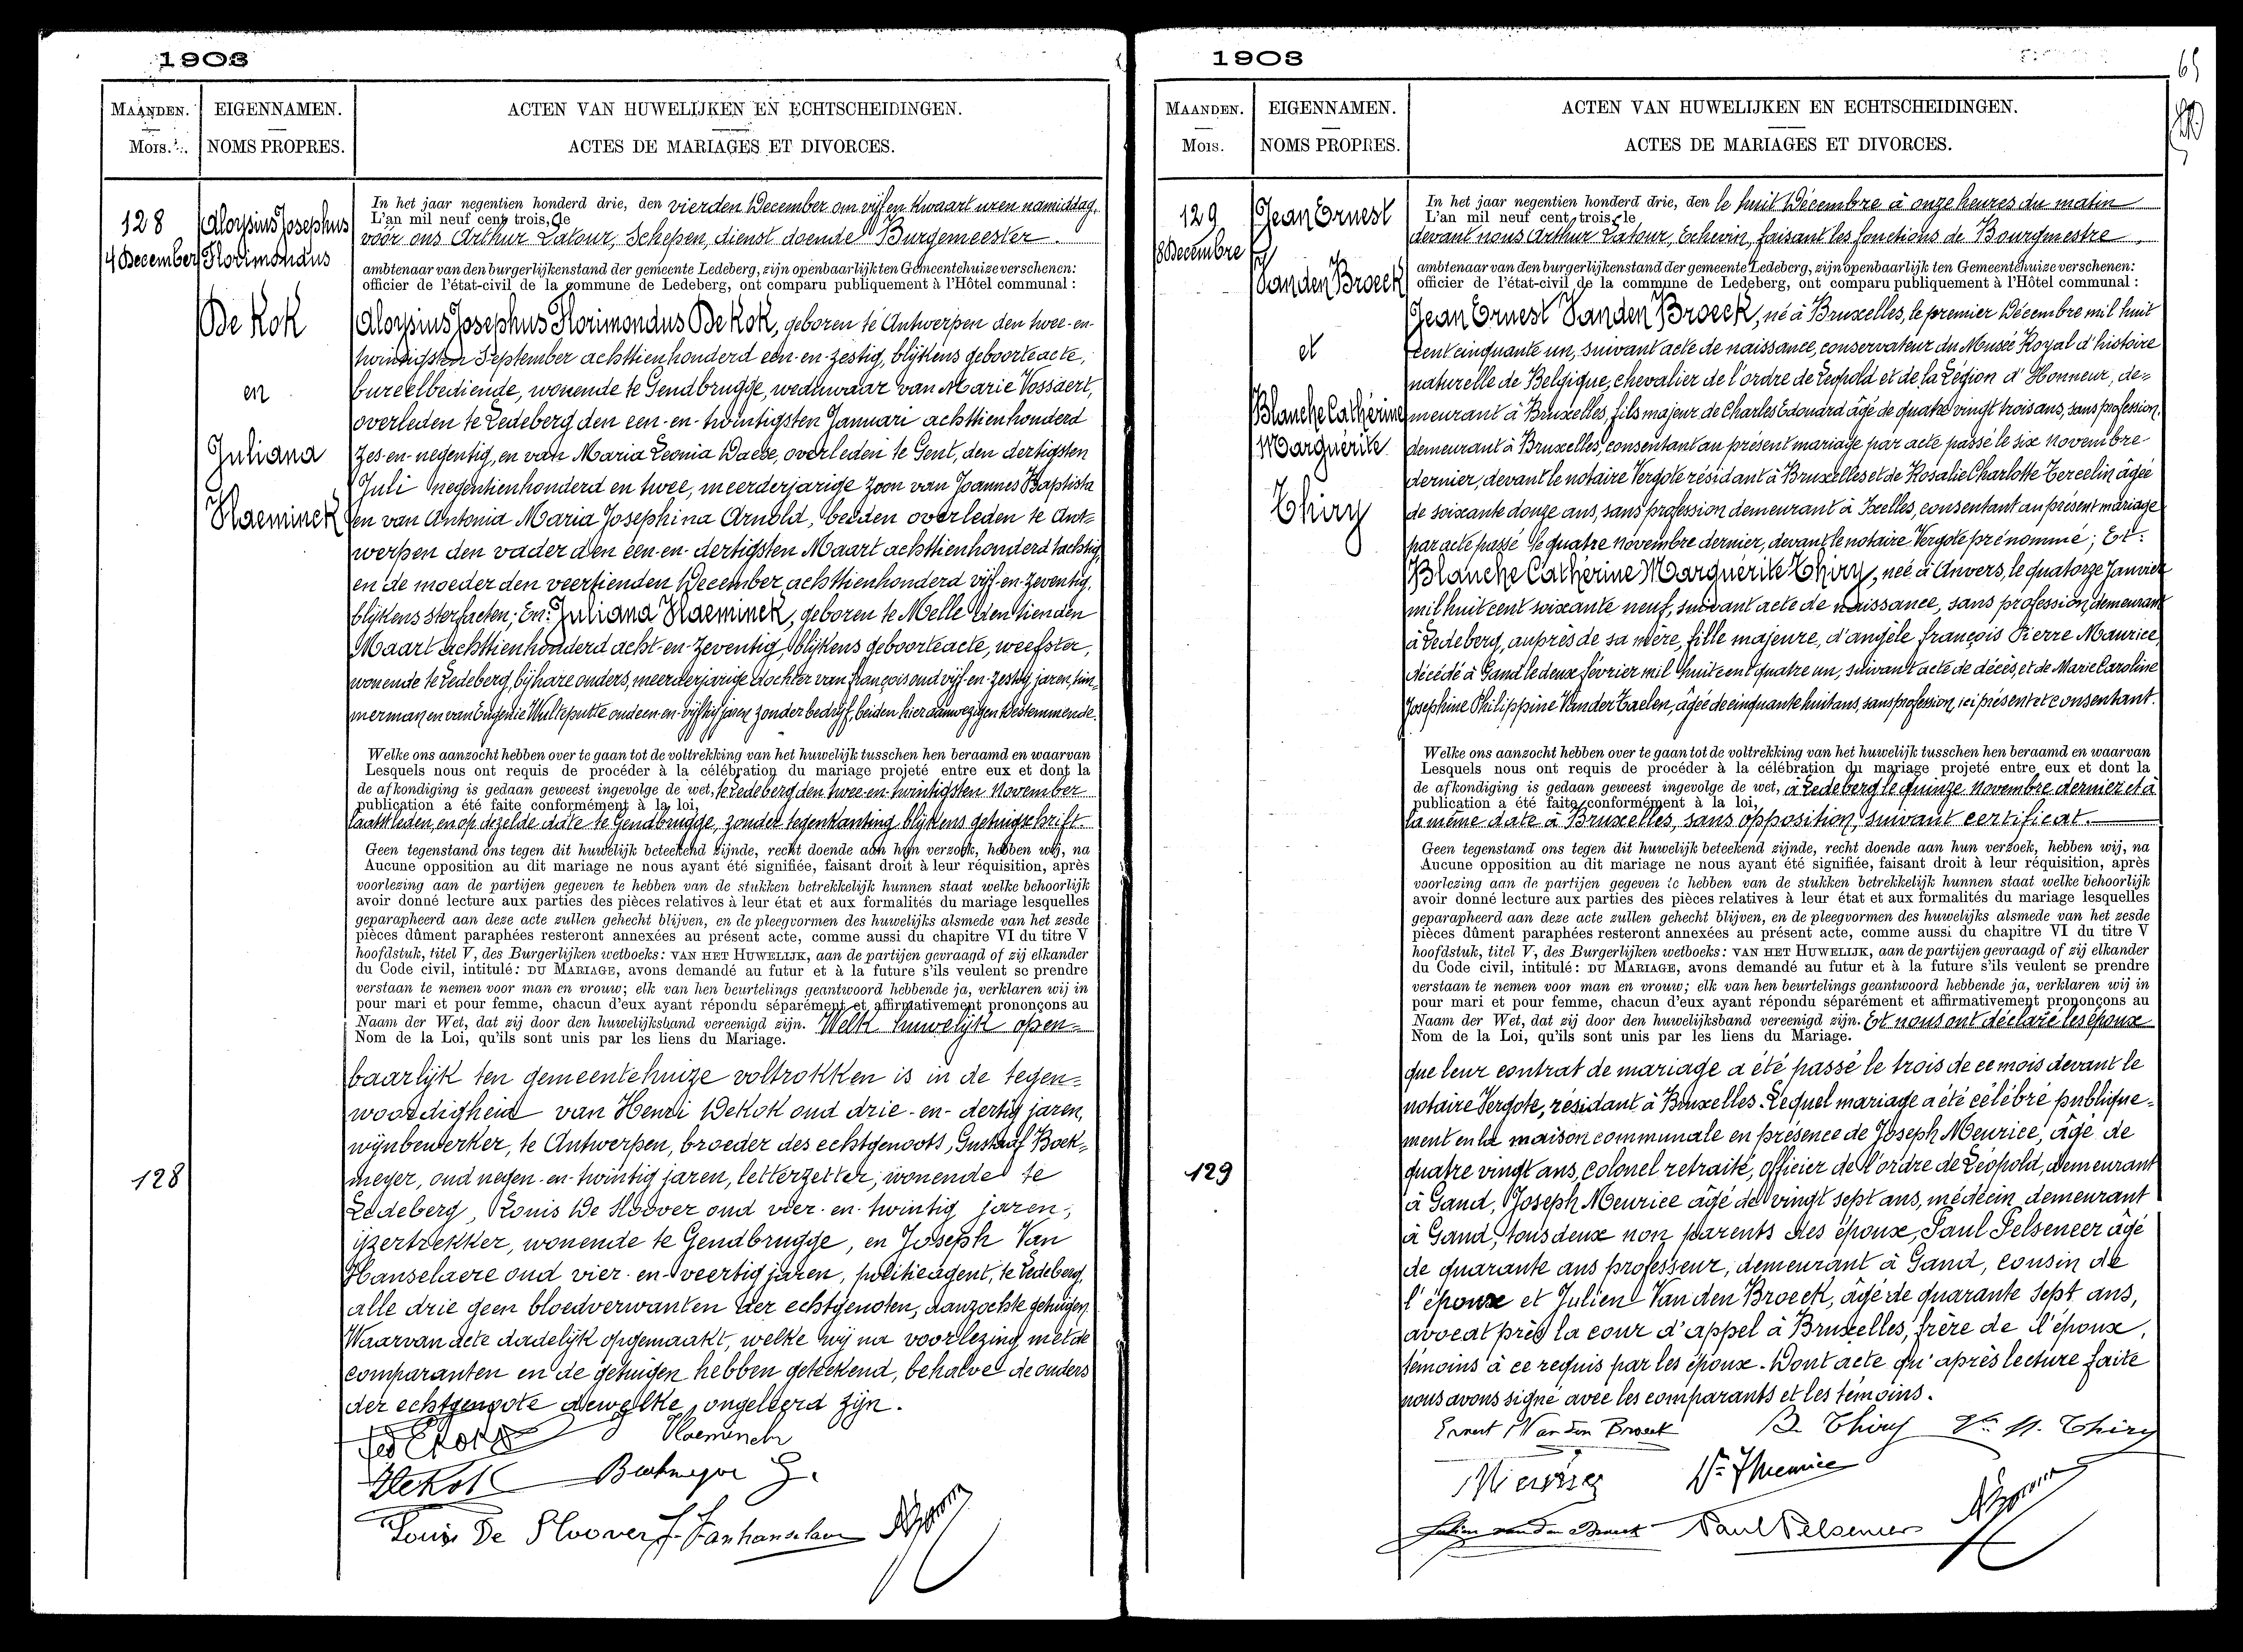 1903
MAANDEN.
Mois.
EIGENNAMEN.
NOMS PROPRES.
ACTEN VAN HUWELIJKEN EN ECHTSCHEIDINGEN.
ACTES DE MARIAGES ET DIVORCES.
128
4 December
Aloysius Josephus
Florimondus
De Kok
en
Juliana
Vlaeminck
In het jaar negentien honderd drie, den vierden December om vijf en kwaart uren namiddag,
L'an mil neuf cent trois, le
vóór ons Arthur Latour, Schepen, dienst doende Burgemeester.
ambtenaar van den burgerlijkenstand der gemeente Ledeberg, zijn openbaarlijk ten Gemeentehuize verschenen:
officier de l'état-civil de la commune de Ledeberg, ont comparu publiquement à l'Hôtel communal :
Aloysius Josephus Florimondus De Kok, geboren te Antwerpen den twee-en-
twintigsten September achttienhonderd een-en-zestig, blijkens geboorteacte,
bureelbediende, wonende te Gendbrugge, weduwaar van Marie Vossaert,
overleden te Ledeberg den een-en-twintigsten Januari achttienhonderd
zes-en-negentig, en van Maria Leonia Daese, overleden te Gent, den dertigsten
Juli negentienhonderd en twee, meerderjarige zoon van Joannes Baptista
en van Antonia Maria Josephina Arnold, beiden overleden te Ant=
werpen den vader den een-en-dertigsten Maart achttienhonderd tachtig,
en de moeder den veertienden December achttienhonderd vijf-en-zeventig,
blijkens sterfacten; En: Juliana Vlaeminck, geboren te Melle den tienden
Maart achttienhonderd acht-en-zeventig, blijkens geboorteacte, weefster,
wonende te Ledeberg, bij hare ouders, meerderjarige dochter van François oud vijf-en-zestig jaren, tim=
merman en van Eugenie Wulteputte oud een-en-vijftig jaren zonder bedrijf, beiden hier aanwezig en toestemmende.
Welke ons aanzocht hebben over te gaan tot de voltrekking van het huwelijk tusschen hen beraamd en waarvan
Lesquels nous ont requis de procéder à la célébration du mariage projeté entre eux et dont la
de afkondiging is gedaan geweest ingevolge de wet, te Ledeberg den twee-en-twintigsten November
publication a été faite conformément à la loi,
laatstleden, en op dezelde date te Gendbrugge, zonder tegenkanting blijkens getuigschrift.
Geen tegenstand ons tegen dit huwelijk beteekend zijnde, recht doende aan hun verzoek, hebben wij, na
Aucune opposition au dit mariage ne nous ayant été signifiée, faisant droit à leur réquisition, après
voorlezing aan de partijen gegeven te hebben van de stukken betrekkelijk hunnen staat welke behoorlijk
avoir donné lecture aux parties des pièces relatives à leur état et aux formalités du mariage lesquelles
geparapheerd aan deze acte zullen gehecht blijven, en de pleegvormen des huwelijks alsmede van het zesde
pièces dûment paraphées resteront annexées au présent acte, comme aussi du chapitre VI du titre V
hoofdstuk, titel V, des Burgerlijken wetboeks: VAN HET HUWELIJK, aan de partijen gevraagd of zij elkander
du Code civil, intitulé: DU MARIAGE, avons demandé au futur et à la future s'ils veulent se prendre
verstaan te nemen voor man en vrouw; elk van hen beurtelings geantwoord hebbende ja, verklaren wij in
pour mari et pour femme, chacun d'eux ayant répondu séparément et affirmativement prononçons au
Naam der Wet, dat zij door den huwelijksband vereenigd zijn. Welk huwelijk open=
Nom de la Loi, qu'ils sont unis par les liens du Mariage.
baarlijk ten gemeentehuize voltrokken is in de tegen=
woordigheid van Henri Dekok oud drie-en-dertig jaren,
wijnbewerker, te Antwerpen, broeder des echtgenoots, Gustaaf Boek=
meyer, oud negen-en-twintig jaren, letterzetter, wonende te
Ledeberg, Louis De Sloover oud vier-en-twintig jaren,
ijzertrekker, wonende te Gendbrugge, en Joseph Van
Hanselaere oud vier-en-veertig jaren, politieagent, te Ledeberg,
alle drie geen bloedverwanten der echtgenoten, aanzochte getuigen.
Waarvan acte dadelijk opgemaakt, welke wij na voorlezing met de
comparanten en de getuigen hebben geteekend, behalve de ouders
der echtgenoote dewelke ongeleerd zijn.
128
Vlaeminck
HDekok
Boekmeyer G.
Louis De Sloover
J. Vanhanselaere
1903
65
MAANDEN.
Mois.
EIGENNAMEN.
NOMS PROPRES.
ACTEN VAN HUWELIJKEN EN ECHTSCHEIDINGEN.
ACTES DE MARIAGES ET DIVORCES.
129
8 Decembre
Jean Ernest
Vanden Broeck
et
Blanche Cathérine
Marguérite
Thiry
In het jaar negentien honderd drie, den le huit Décembre à onze heures du matin
L'an mil neuf cent trois, le
devant nous Arthur Latour, Echevin, faisant les fonctions de Bourgmestre,
ambtenaar van den burgerlijkenstand der gemeente Ledeberg, zijn openbaarlijk ten Gemeentehuize verschenen:
officier de l'état-civil de la commune de Ledeberg, ont comparu publiquement à l'Hôtel communal :
Jean Ernest Vanden Broeck, né à Bruxelles, le premier Décembre mil huit
cent cinquante un, suivant acte de naissance, conservateur du Musée Royal d'histoire
naturelle de Belgique, chevalier de l'ordre de Léopold et de la Légion d'Honneur, de=
meurant à Bruxelles, fils majeur de Charles Edouard âgé de quatre vingt trois ans, sans profession,
demeurant à Bruxelles, consentant au présent mariage par acte passé le six novembre
dernier, devant le notaire Vergote résidant à Bruxelles et de Rosalie Charlotte Tercelin âgée
de soixante douze ans, sans profession demeurant à Ixelles, consentant au présent mariage
par acte passé le quatre novembre dernier, devant le notaire Vergote prénommé; Et:
Blanche Catherine Marguérite Thiry, neé à Anvers, le quatorze Janvier
mil huit cent soixante neuf, suivant acte de naissance, sans profession, demeurant
à Ledeberg, auprès de sa mère, fille majeure, d'angèle françois Pierre Maurice,
décédé à Gand le deux février mil huit cent quatre un, suivant acte de décès, et de Marie Caroline
Josephine Philippine Vander Taelen, âgée de cinquante huit ans, sans profession, ici présente et consentant.
Welke ons aanzocht hebben over te gaan tot de voltrekking van het huwelijk tusschen hen beraamd en waarvan
Lesquels nous ont requis de procéder à la célébration du mariage projeté entre eux et dont la
de afkondiging is gedaan geweest ingevolge de wet, à Ledeberg le quinze novembre dernier et à
publication a été faite conformément à la loi,
la même date à Bruxelles, sans opposition, suivant certificat.
Geen tegenstand ons tegen dit huwelijk beteekend zijnde, recht doende aan hun verzoek, hebben wij, na
Aucune opposition au dit mariage ne nous ayant été signifiée, faisant droit à leur réquisition, après
voorlezing aan de partijen gegeven te hebben van de stukken betrekkelijk hunnen staat welke behoorlijk
avoir donné lecture aux parties des pièces relatives à leur état et aux formalités du mariage lesquelles
geparapheerd aan deze acte zullen gehecht blijven, en de pleegvormen des huwelijks alsmede van het zesde
pièces dûment paraphées resteront annexées au présent acte, comme aussi du chapitre VI du titre V
hoofdstuk, titel V, des Burgerlijken wetboeks: VAN HET HUWELIJK, aan de partijen gevraagd of zij elkander
du Code civil, intitulé: DU MARIAGE, avons demandé au futur et à la future s'ils veulent se prendre
verstaan te nemen voor man en vrouw; elk van hen beurtelings geantwoord hebbende ja, verklaren wij in
pour mari et pour femme, chacun d'eux ayant répondu séparément et affirmativement prononçons au
Naam der Wet, dat zij door den huwelijksband vereenigd zijn. Et nous ont déclaré les époux
Nom de la Loi, qu'ils sont unis par les liens du Mariage.
que leur contrat de mariage a été passé le trois de ce mois devant le
notaire Vergote, résidant à Bruxelles. Lequel mariage a été célébré publique=
ment en la maison communale en présence de Joseph Meurice, âgé de
quatre vingt ans, colonel retraité, officier de l'ordre de Léopold, demeurant
à Gand, Joseph Meurice âgé de vingt sept ans, médecin demeurant
à Gand, tous deux non parents des époux, Paul Pelseneer âgé
de quarante ans professeur, demeurant à Gand, cousin de
l'épouse et Julien Van den Broeck, âgé de quarante sept ans,
avocat près la cour d'appel à Bruxelles, frère de l'époux,
témoins à ce requis par les époux. Dont acte qu'après lecture faite
nous avons signé avec les comparants et les témoins.
129
Ernest Van den Broeck
B. Thiry
Ve M. Thiry
Meurice
Dr J Meurice
Julien van den Broeck
Paul Pelseneer